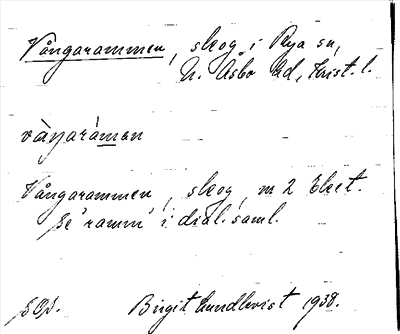 Vångarammen, skog i Rya sn,
N. Åsbo hd, Krist. l.
våŋaràmen
Vångarammen, skog, m 2 Ekct.
se 'ramm' i dial. saml.
Birgit Lundkvist 1938.